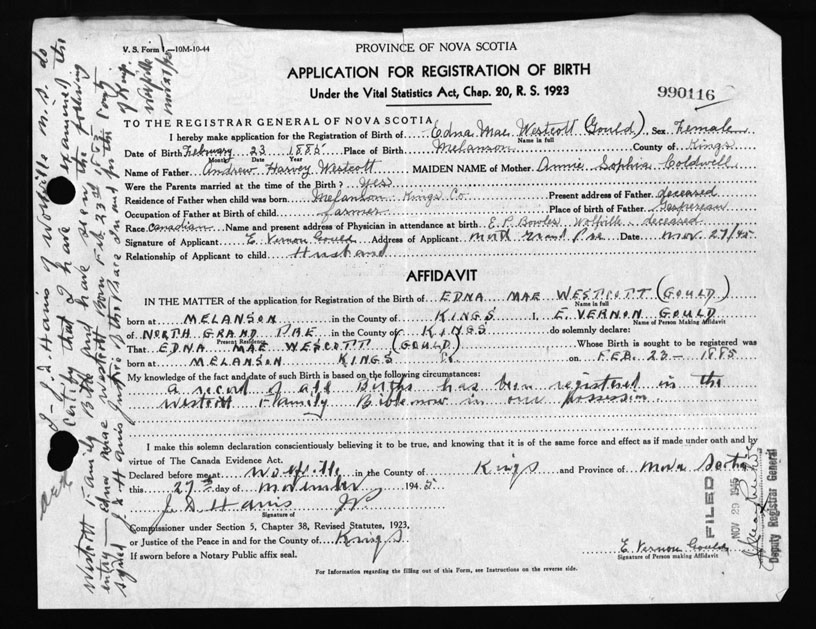 V. S. Form 1—10M-10-44
PROVINCE OF NOVA SCOTIA
APPLICATION FOR REGISTRATION OF BIRTH
Under the Vital Statistics Act, Chap. 20, R. S. 1923
990116
TO THE REGISTRAR GENERAL OF NOVA SCOTIA
I hereby make application for the Registration of Birth of Edna Mae Westcott (Gould), Sex Female
Name in full
Date of Birth February 23 1885 Place of Birth Melanson County of Kings
Month Date Year
Name of Father Andrew Harvey Westcott MAIDEN NAME of Mother Annie Sophia Coldwell
Were the Parents married at the time of the Birth? yes
Residence of Father when child was born Melanson Kings Co. Present address of Father deceased
Occupation of Father at Birth of child farmer Place of birth of Father Gaspereau
Race Canadian Name and present address of Physician in attendance at birth E. P. Bowles Wolfville deceased
Signature of Applicant E. Vernon Gould Address of Applicant North Grand Pre Date Nov. 27/45
Relationship of Applicant to child Husband
AFFIDAVIT
IN THE MATTER of the application for Registration of the Birth of EDNA MAE WESTCOTT (GOULD)
Name in full
born at MELANSON in the County of KINGS I, E. VERNON GOULD
Name of Person Making Affidavit
of NORTH GRAND PRE in the County of KINGS do solemnly declare:
Present Residence
That EDNA MAE WESCOTT (GOULD) Whose Birth is sought to be registered was
born at MELANSON KINGS Co. on FEB. 23 - 1885
My knowledge of the fact and date of such Birth is based on the following circumstances:
a record of all Births has been registered in the
Westcott Family Bible now in our possession.
I make this solemn declaration conscientiously believing it to be true, and knowing that it is of the same force and effect as if made under oath and by
virtue of The Canada Evidence Act.
Declared before me at Wolfville in the County of Kings and Province of Nova Scotia
this 27th day of November 1945
J. D. Harris J.P.
Signature of
Commissioner under Section 5, Chapter 38, Revised Statutes, 1923,
or Justice of the Peace in and for the County of Kings
If sworn before a Notary Public affix seal.
E. Vernon Gould
Signature of Person making Affidavit
For Information regarding the filling out of this Form, see Instructions on the reverse side.
FILED
NOV 29 1945
Deputy Registrar General
I - J. D. Harris of Wolfville N.S. do
certify that I have examined the
Westcott Family Bible and have seen the following
entry — Edna Mae Westcott born Feb. 23rd 1885
signed J. D. Harris Justice of the Peace in and for the County
of Kings
Wolfville